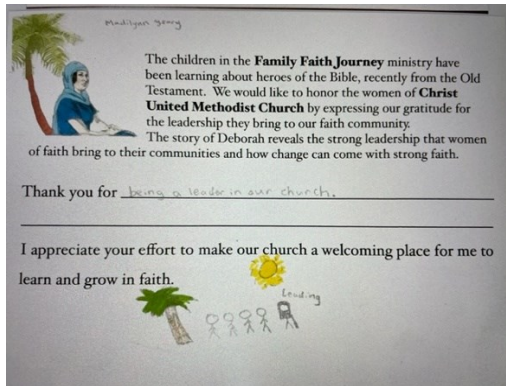 Madilynn
The children in the Family Faith Journey ministry have
been learning about heroes of the Bible, recently from the Old
Testament. We would like to honor the women of Christ
United Methodist Church by expressing our gratitude for
the leadership they bring to our faith community.
The story of Deborah reveals the strong leadership that women
of faith bring to their communities and how change can come with strong faith.
Thank you for being a leader in our church.
I appreciate your effort to make our church a welcoming place for me to
learn and grow in faith.
Leading